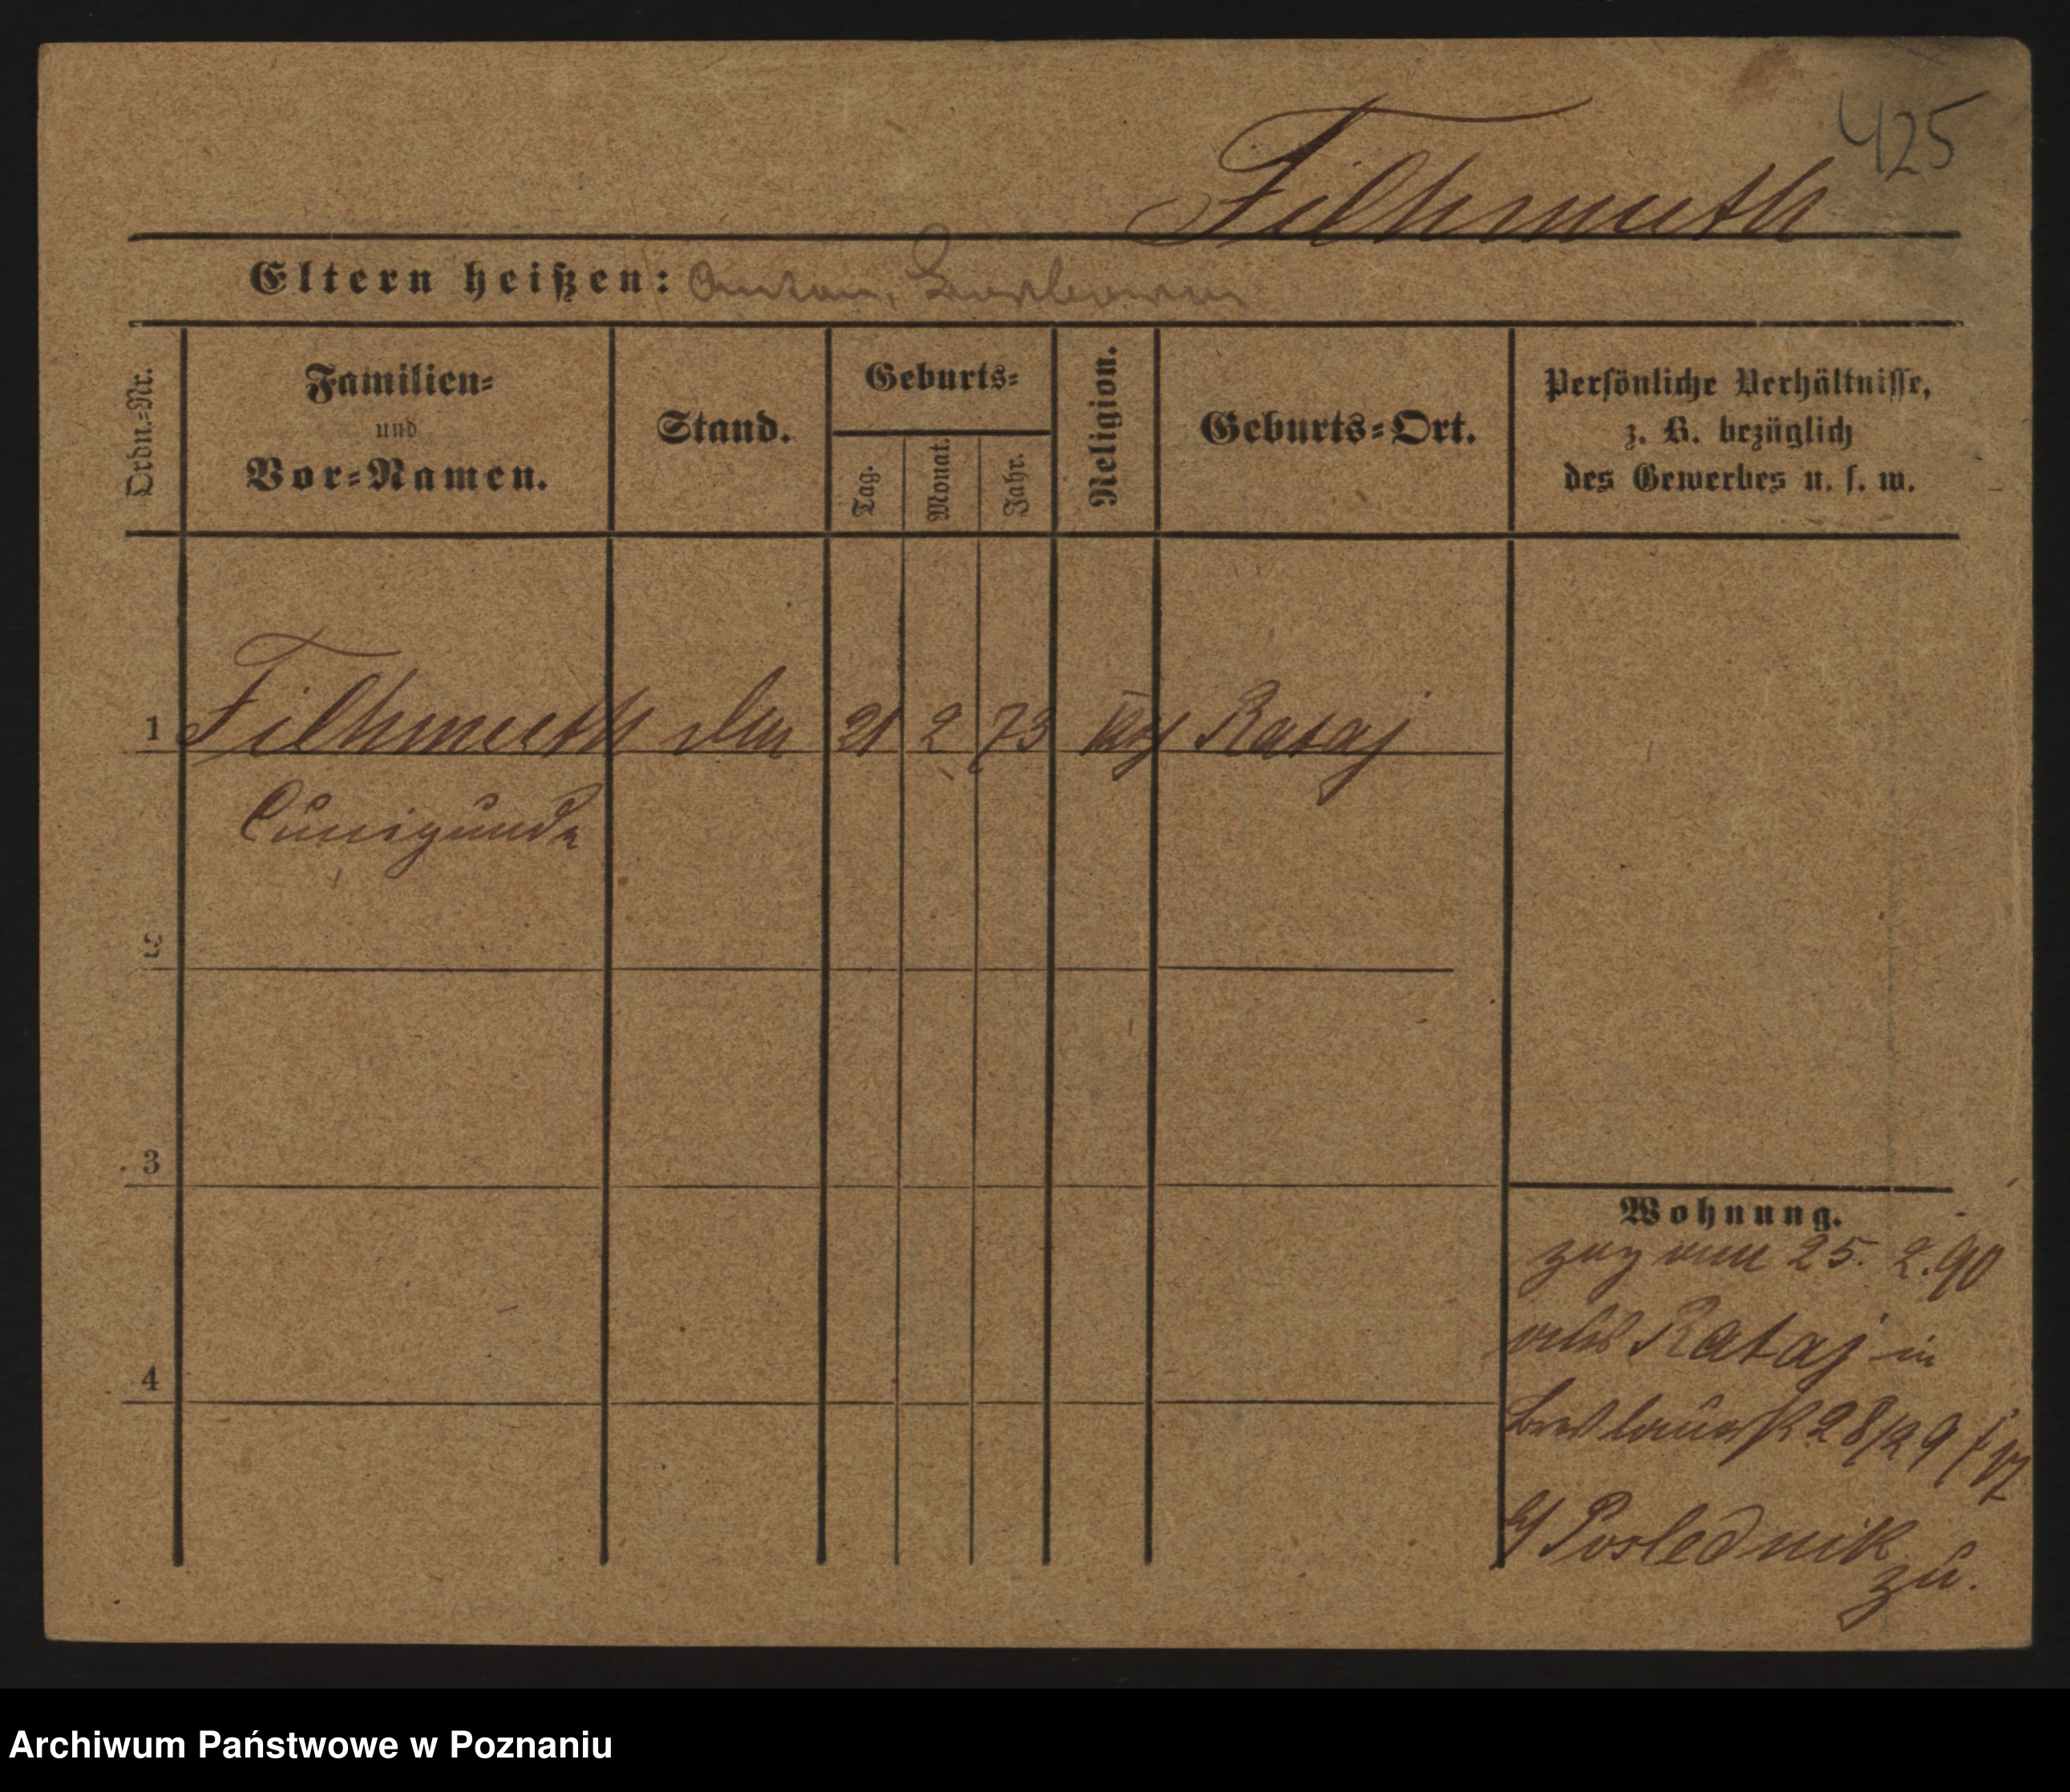 425
Filhmuth
Eltern heißen: Anton, Barbara
Ordn.=Nr.
Familien=
und
Vor=Namen.
Stand.
Geburts=
Tag.
Monat.
Jahr.
Religion.
Geburts=Ort.
Persönliche Verhältnisse,
z. B. bezüglich
des Gewerbes u. s. w.
1 Filhmuth 21 2 73 Rataj
Cunigunde
2
3
4
Wohnung.
zog am 25. 2. 90
aus Rataj in
Breslauerst 28/29
Poslednik
zu.
Archiwum Państwowe w Poznaniu